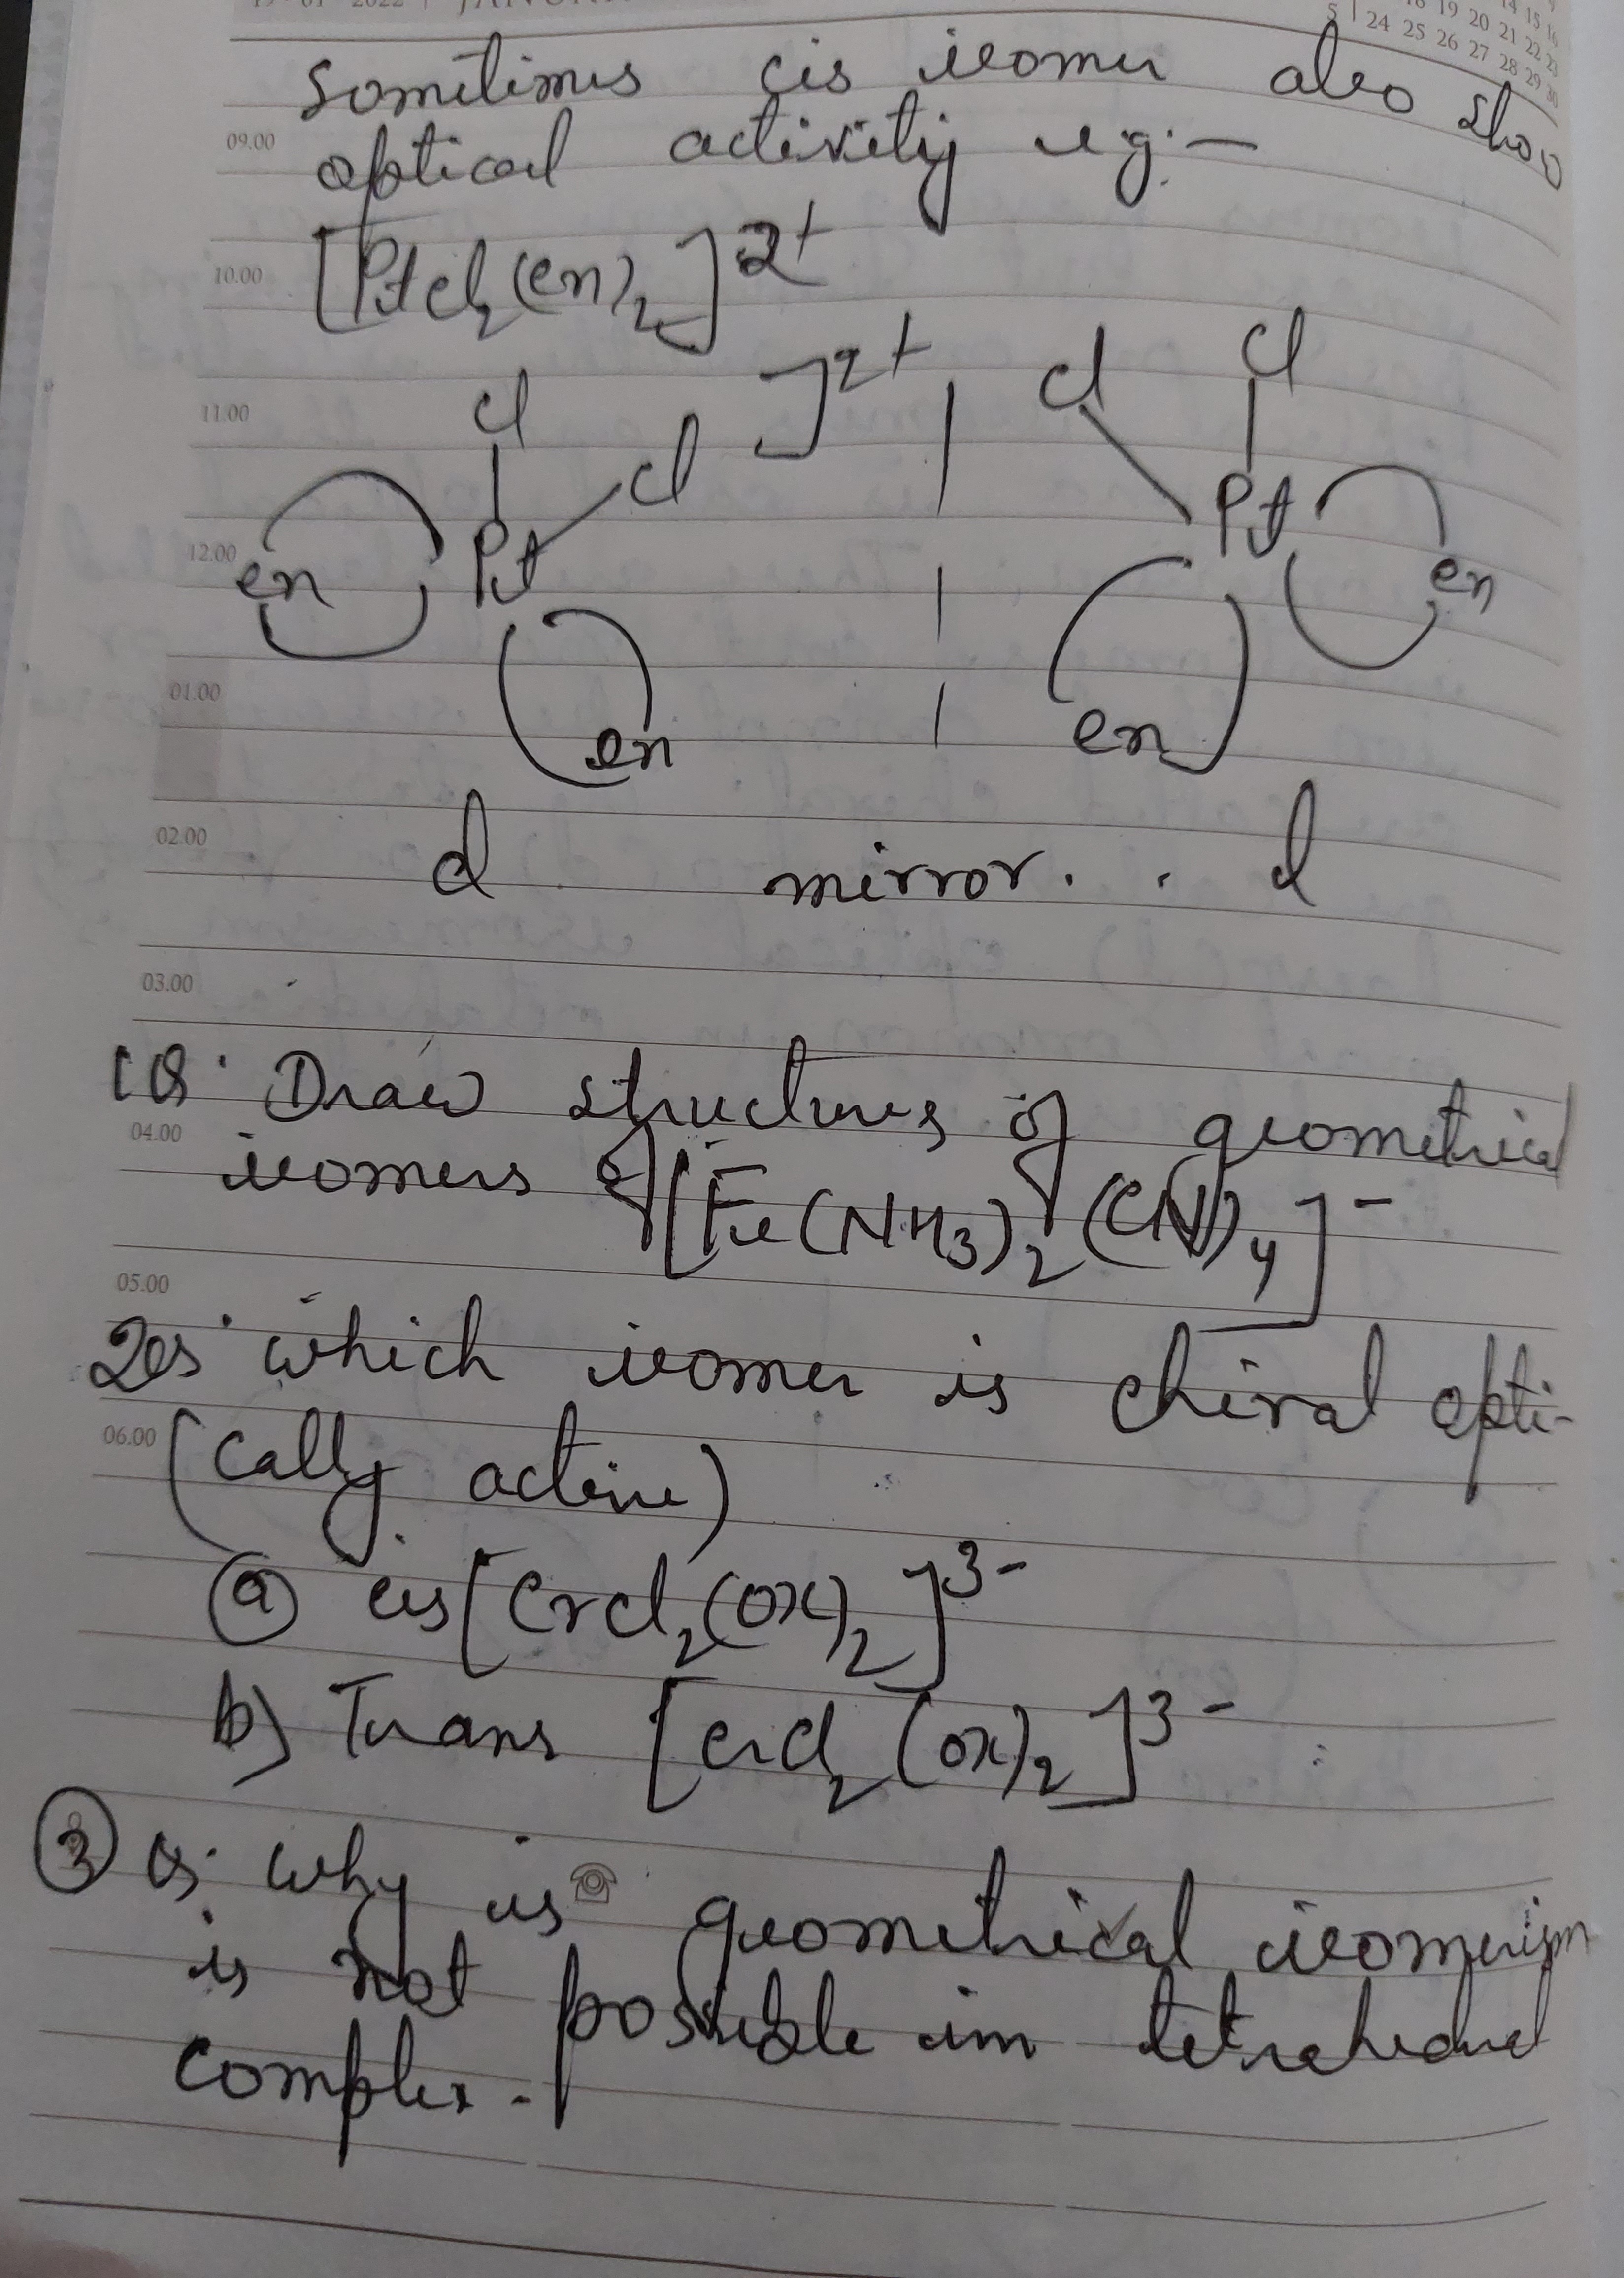 19 - 01 - 2022 | JANU
14 15 16
18 19 20 21 22 23
5 | 24 25 26 27 28 29 30
Sometimes cis isomer also show
09.00
optical activity eg:—
10.00
[PtCl₂(en)₂]²⁺
Cl ]²⁺ Cl Cl
11.00
Cl
en Pt Pt en
12.00
en en
01.00
d mirror. l
02.00
03.00
1Q. Draw structures of geometrical
04.00
isomers of [Fe(NH₃)₂(CN)₄]⁻
05.00
2Q. which isomer is chiral opti-
06.00
(cally active)
(a) cis [CrCl₂(ox)₂]³⁻
b) Trans [CrCl₂(ox)₂]³⁻
(3) Q. Why is geometrical isomerism
is not possible in tetrahedral
complex.